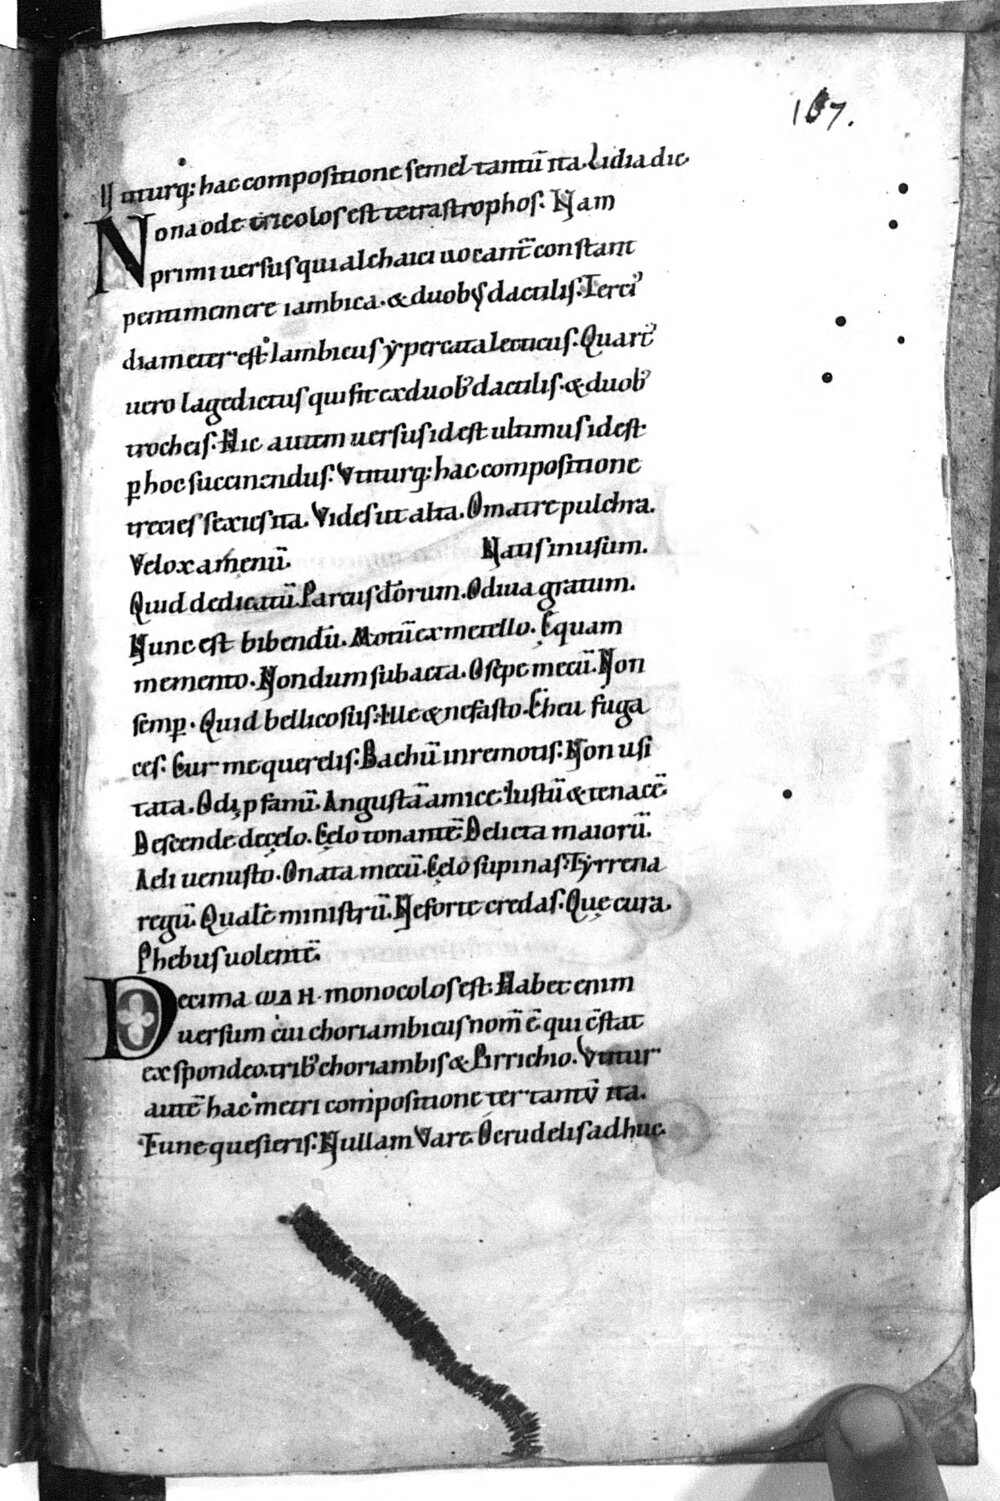 167.
Vtiturq; hac compositione semel tantū ita. Lidia dic
Nona ode tricolos est tetrastrophos. Nam
primi uersus qui alchaici uocant̄ constant
pentimemere iambica. & duobꝫ dactilis. Terci᾿
diameter est Iambicus ẏpercatalecticus. Quart᾿
uero lagedictus qui fit ex duob᾿ dactilis. & duob᾿
trocheis. Hic autem uersus id est ultimus id est
ꝑ hoc succinendus. Vtiturq; hac compositione
trecies sexies ita. Vides ut alta. O matre pulchra.
Velox amenū. Natis in usum.
Quid dedicatū. Parcus d̄orum. O diua gratum.
Nunc est bibend̄u. Motū ex metello. Equam
memento. Nondum subacta. O sepe mecū. Non
semꝑ. Quid bellicosus. Ille & nefasto. Eheu fuga
ces. Cur me querelis. Bachū in remotis. Non usi
tata. Odi ꝓfanū. Angustā amice. Iustū & tenacē
Descende dęcelo. Cęlo tonantē. Delicta maiorū.
Aeli uenusto. O nata mecū. Cęlo supinas. Tyrrena
regū. Qualē ministrū. Ne forte credas. Quę cura.
Phebus uolentē.
Decima ωΔH. monocolos est. Habet enim
uersum cui choriambicus nom̄ ē qui c̄stat
ex spondeo. trib᾿ choriambis & Pirrichio. Vtitur
autē hac metri compositione ter tantū ita.
Tu ne quesieris. Nullam Vare. O crudelis adhuc.